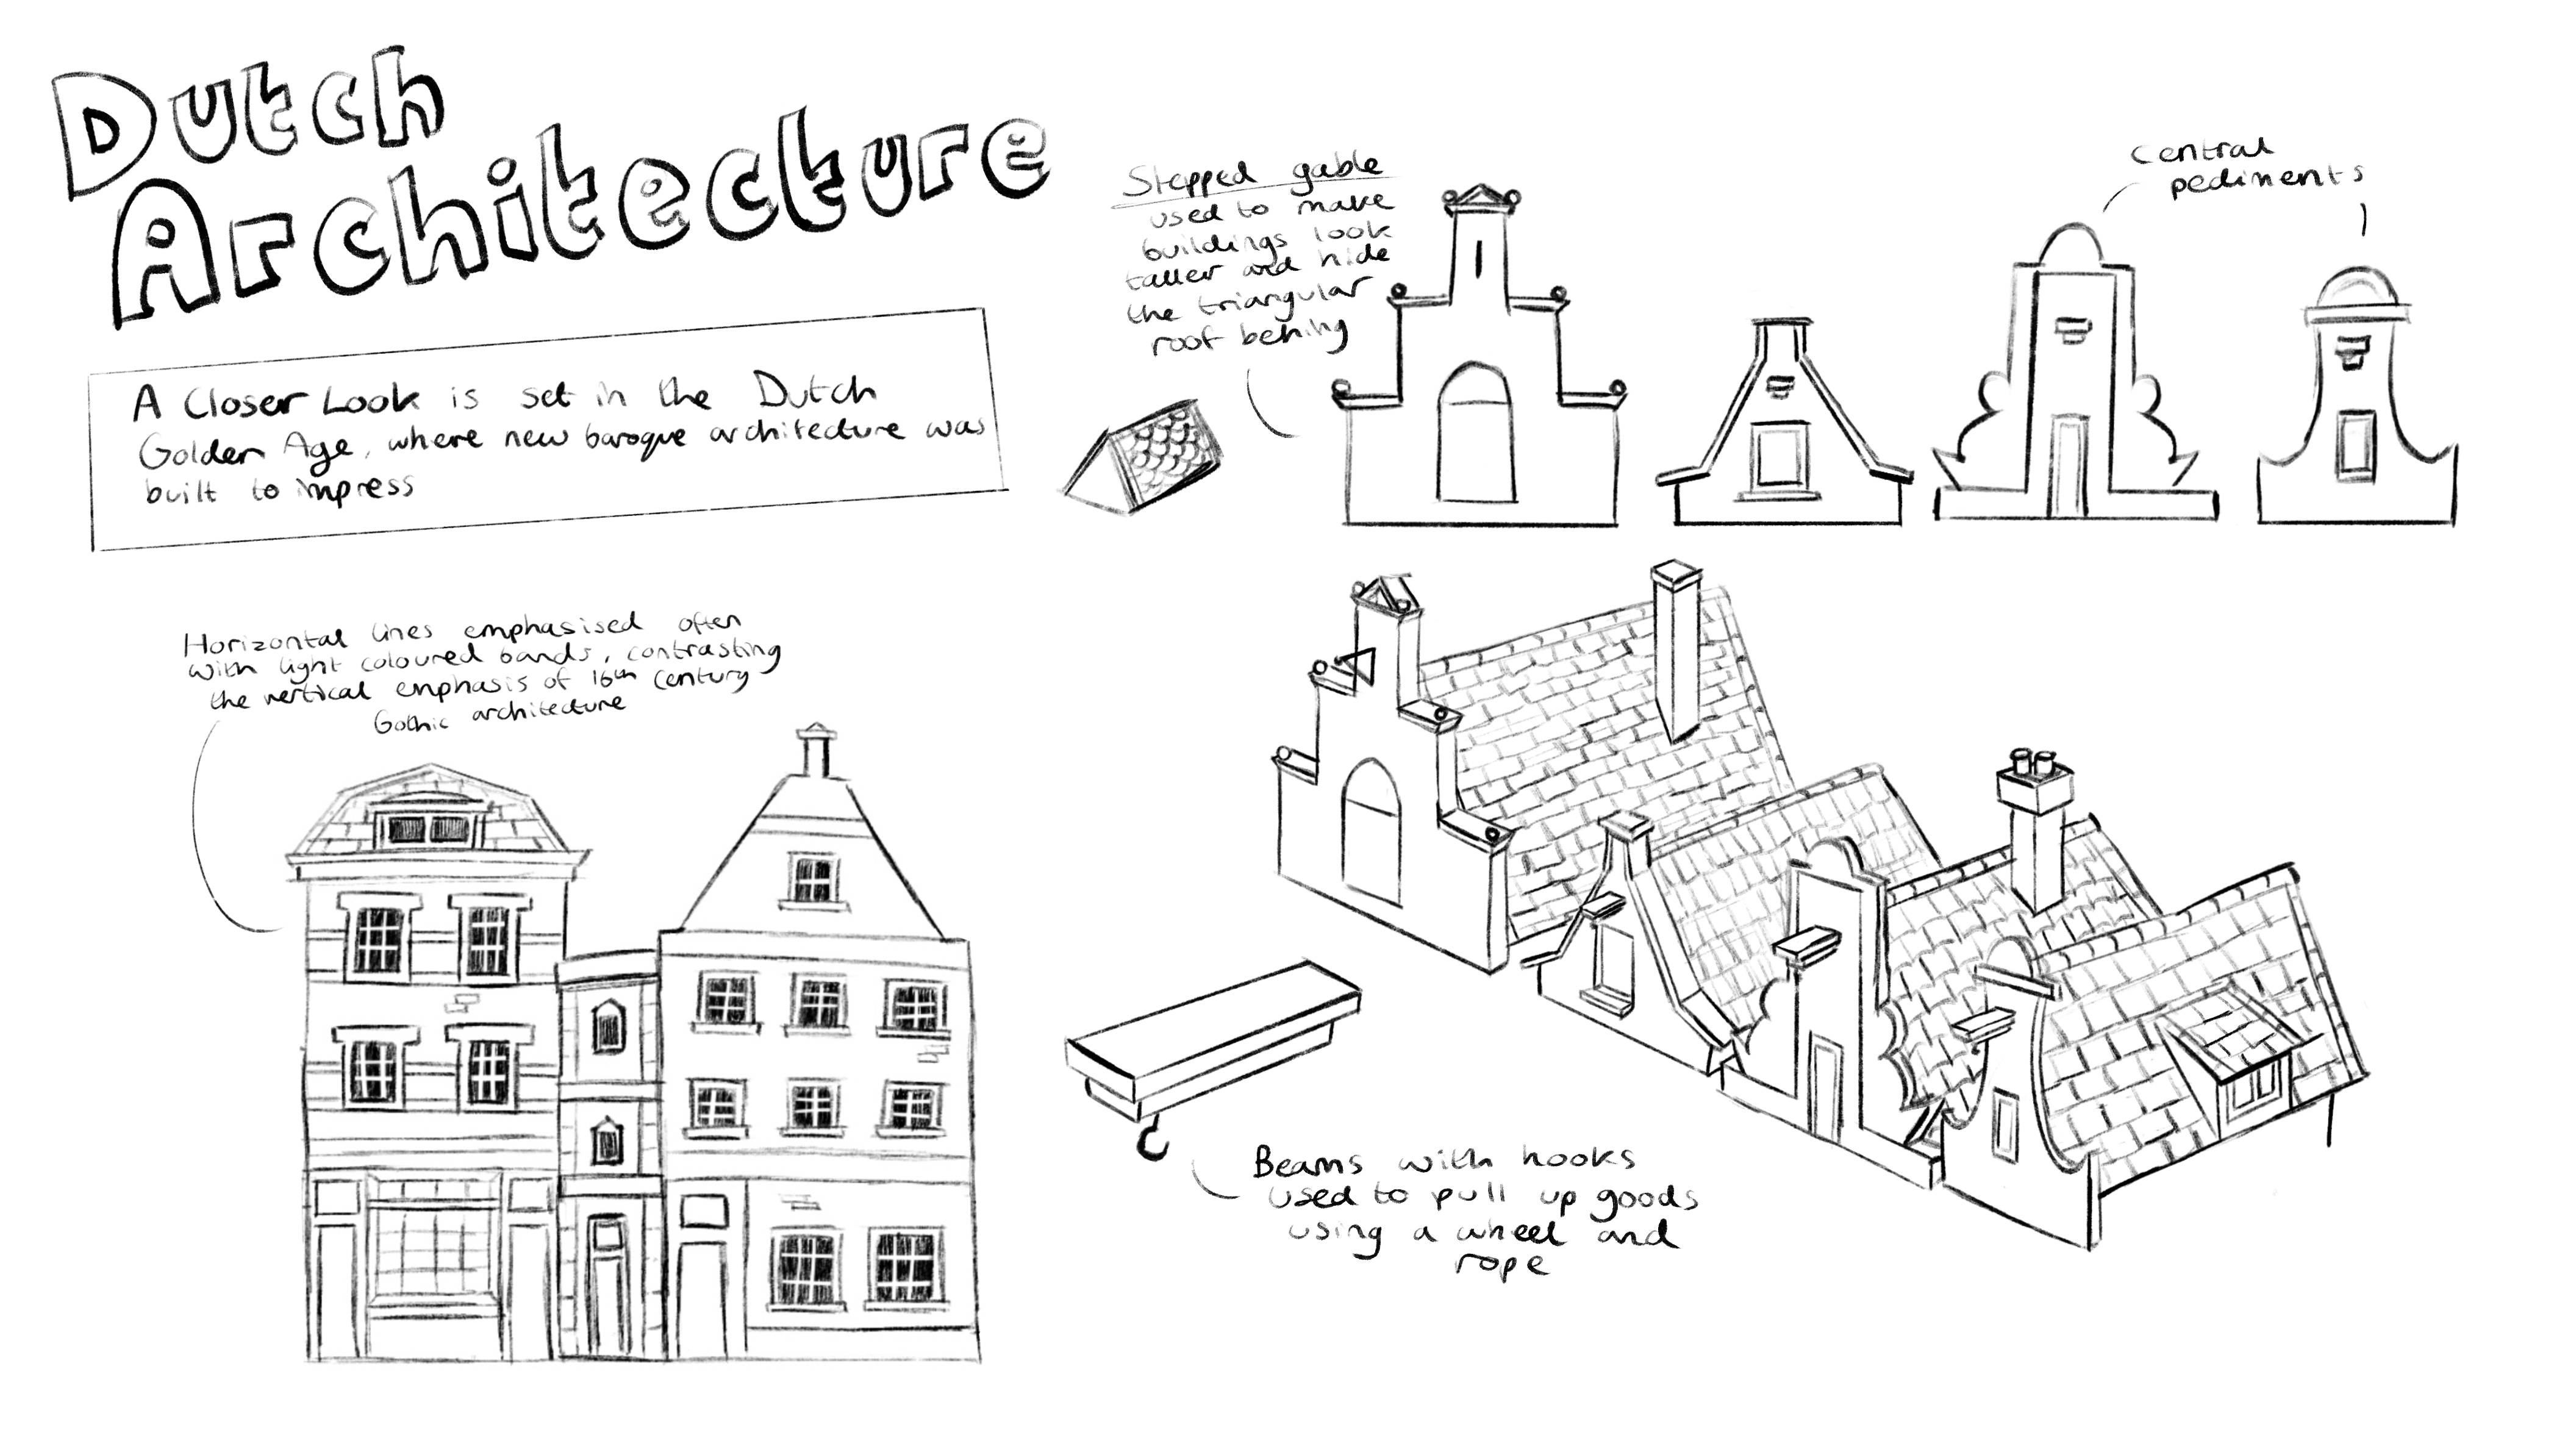 Dutch
Architecture
A Closer Look is set in the Dutch
Golden Age, where new baroque architecture was
built to impress
Stepped gable
used to make
buildings look
taller and hide
the triangular
roof behing
Central
pediments
Horizontal lines emphasised often
with light coloured bands, contrasting
the vertical emphasis of 16th century
Gothic architecture
Beams with hooks
used to pull up goods
using a wheel and
rope